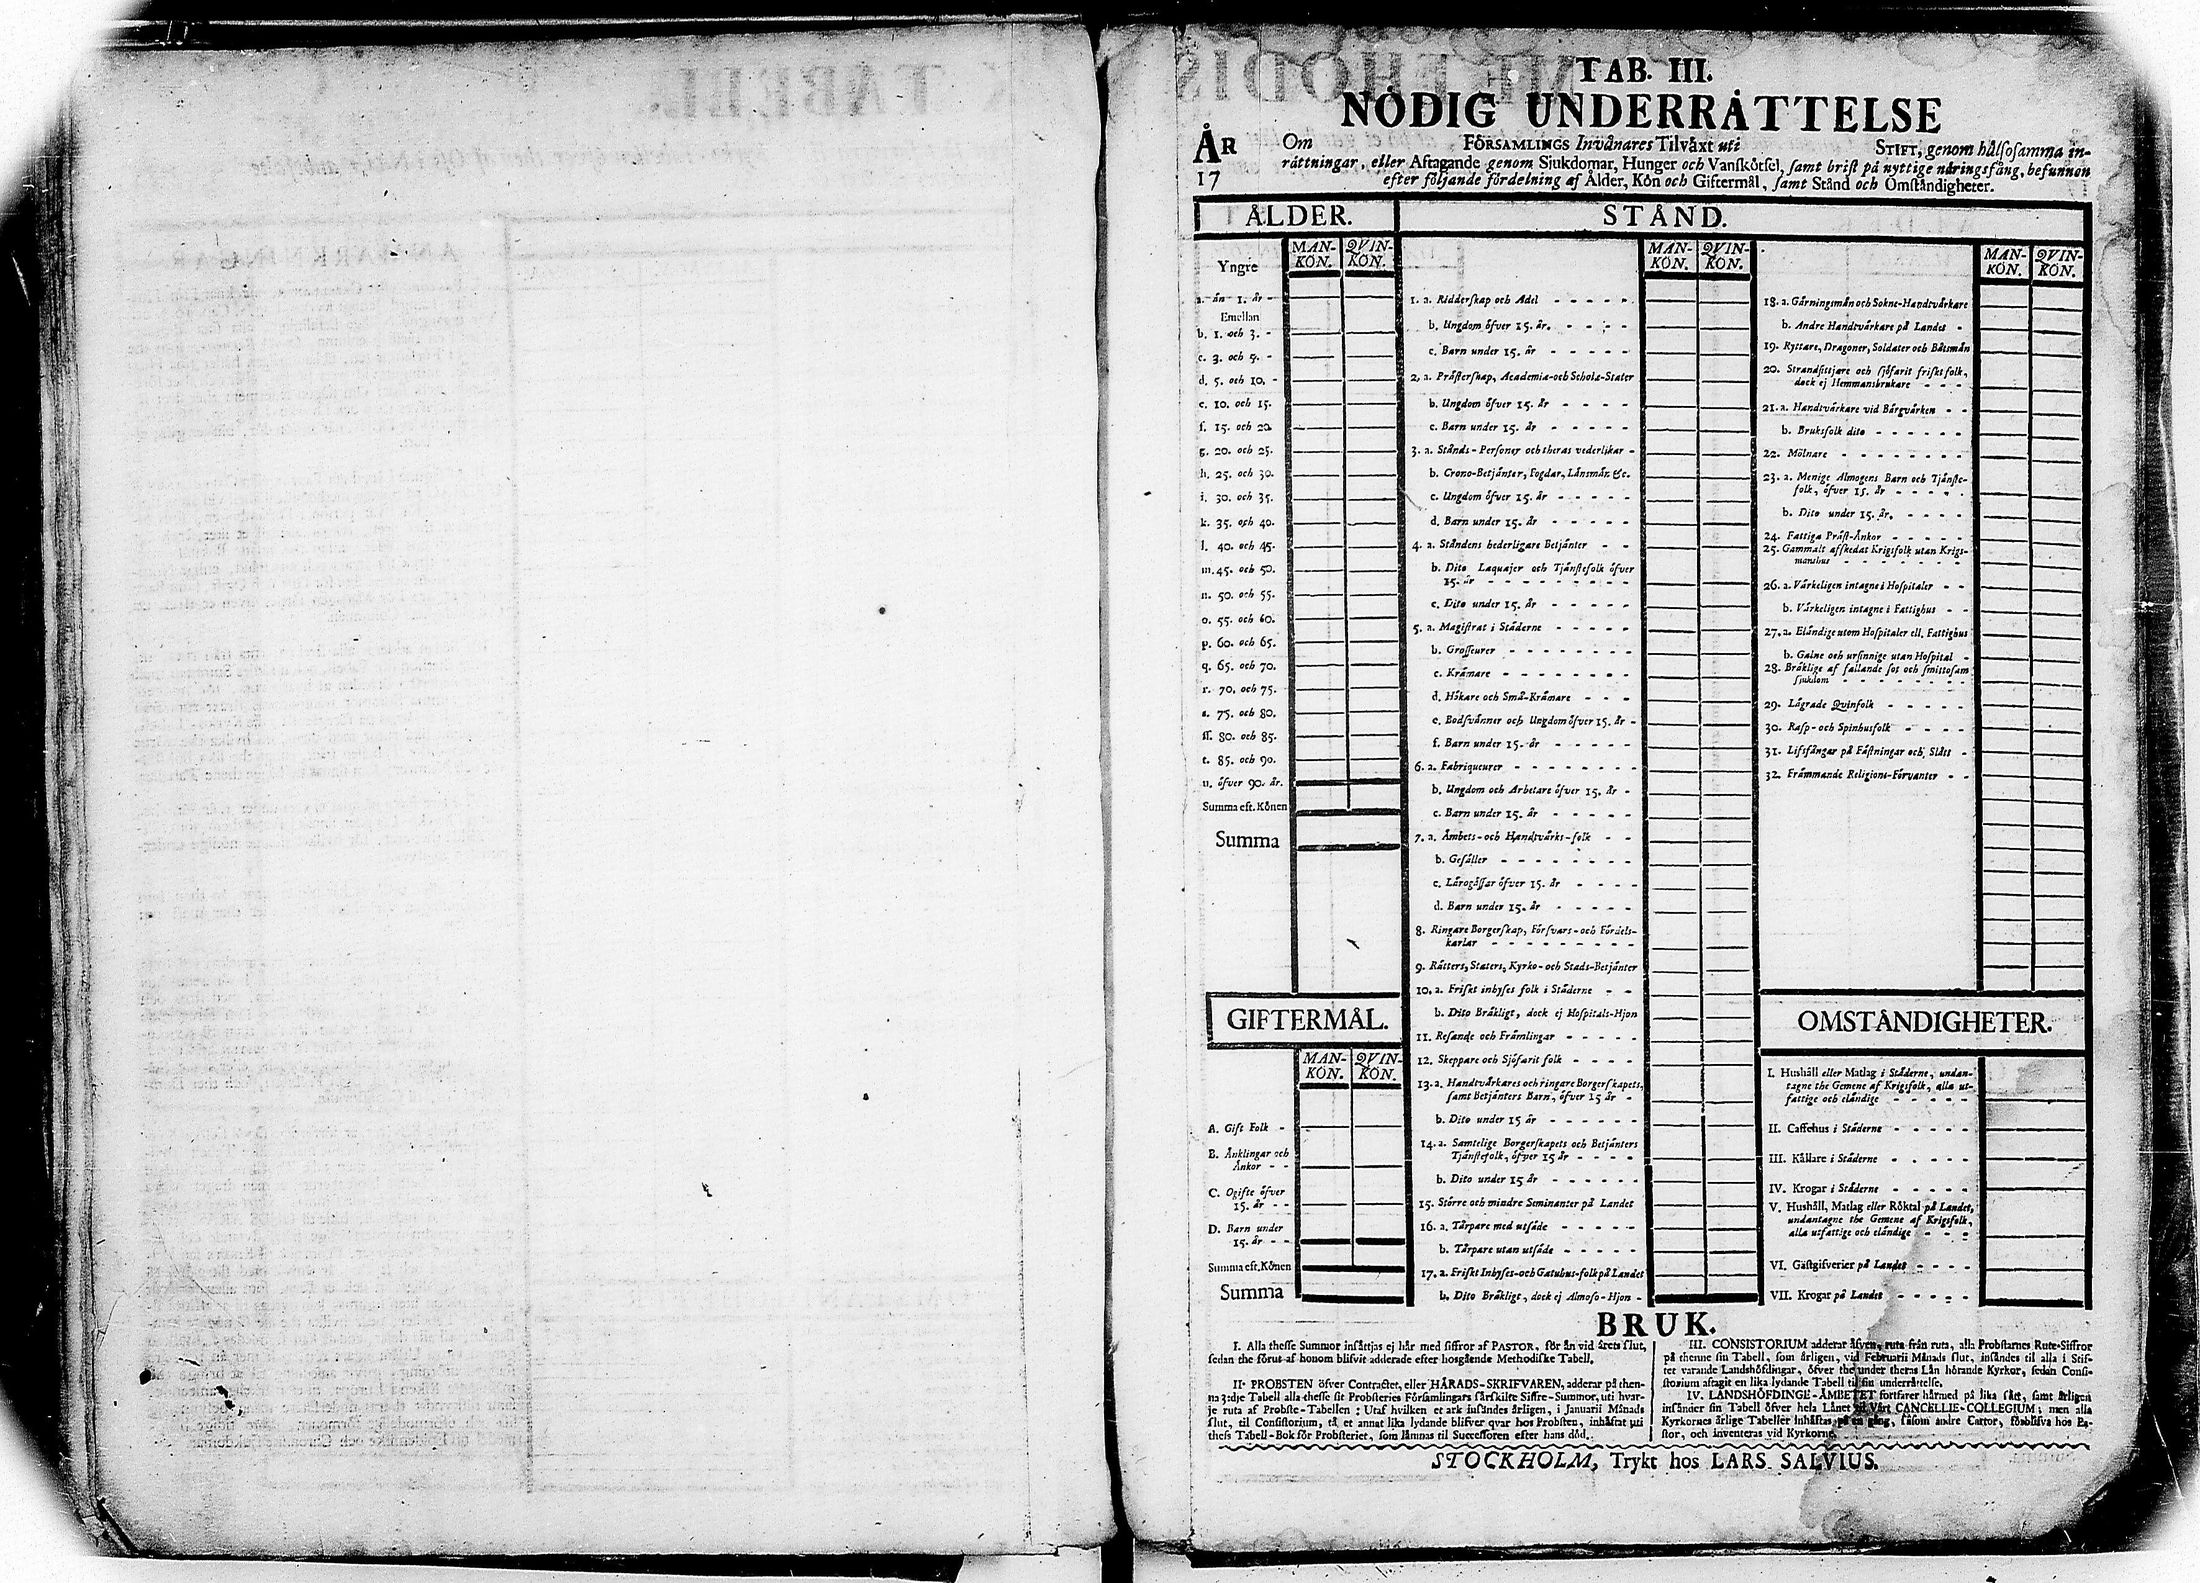 TAB. III.
NÖDIG UNDERRÅTTELSE
ÅR
17
Om FÖRSAMLINGS Invånares Tilvåxt uti STIFT, genom hålsosamma in-
råttningar, eller Aftagande genom Sjukdomar, Hunger och Vanskötsel, samt brist på nyttige nåringsfång, befunnen
efter följande fördelning af Ålder, Kön och Giftermål, samt Stånd och Omståndigheter.
ÅLDER.
MAN-KÖN. QVIN-KÖN.
Yngre
a. ån 1. år -
Emellan
b. 1. och 3. -
c. 3. och 5. -
d. 5. och 10. -
e. 10. och 15.
f. 15. och 20.
g. 20. och 25.
h. 25. och 30.
i. 30. och 35.
k. 35. och 40.
l. 40. och 45.
m. 45. och 50.
n. 50. och 55.
o. 55. och 60.
p. 60. och 65.
q. 65. och 70.
r. 70. och 75.
s. 75. och 80.
ff. 80. och 85.
t. 85. och 90.
u. öfver 90. år.
Summa eft. Könen
Summa
GIFTERMÅL.
MAN-KÖN. QVIN-KÖN.
A. Gift Folk -
B. Änklingar och
Änkor - -
C. Ogifte öfver
15. år - -
D. Barn under
15. år - -
Summa eft. Könen
Summa
STÅND.
MAN-KÖN. QVIN-KÖN.
1. a. Ridderskap och Adel - - - - -
b. Ungdom öfver 15. år. - - - -
c. Barn under 15. år - - - - -
2. a. Pråsterskap, Academiæ-och Scholæ-Stater
b. Ungdom öfver 15. år - - - -
c. Barn under 15. år - - - - -
3. a. Stånds-Personer och theras vederlikar -
b. Crono-Betjånter, Fogdar, Lånsmån &c.
c. Ungdom öfver 15. år - - - -
d. Barn under 15. år - - - - -
4. a. Ståndens hederligare Betjånter - -
b. Dito Laquajer och Tjånstefolk öfver
15. år - - - - - - - -
c. Dito under 15. år - - - - -
5. a. Magistrat i Ståderne - - - - -
b. Grosseurer - - - - - - -
c. Kråmare - - - - - - -
d. Hökare och Små-Kråmare - - -
e. Bodsvånner och Ungdom öfver 15. år -
f. Barn under 15. år - - - - -
6. a. Fabriqueurer - - - - - - -
b. Ungdom och Arbetare öfver 15. år -
c. Barn under 15. år - - - - -
7. a. Åmbets-och Handtvårks-folk - -
b. Gesåller - - - - - - - -
c. Lårogåssar öfver 15. år - - - -
d. Barn under 15. år - - - - -
8. Ringare Borgerskap, Försvars-och Fördels-
karlar - - - - - - - - -
9. Råtters, Staters, Kyrko-och Stads-Betjånter
10. a. Friskt inhyses folk i Ståderne - -
b. Dito Bråkligt, dock ej Hospitals-Hjon
11. Resande och Fråmlingar - - - -
12. Skeppare och Sjöfarit folk - - - -
13. a. Handtvårkares och ringare Borgerskapets,
samt Betjånters Barn, öfver 15 år -
b. Dito under 15 år - - - - -
14. a. Samtelige Borgerskapets och Betjånters
Tjånstefolk, öfver 15 år - - - -
b. Dito under 15 år - - - - -
15. Större och mindre Seminanter på Landet
16. a. Tårpare med utsåde - - - - -
b. Tårpare utan utsåde - - - - -
17. a. Friskt Inhyses-och Gatuhus-folk på Landet
b. Dito Bråkligt, dock ej Almoso-Hjon -
MAN-KÖN. QVIN-KÖN.
18. a. Gårningsmån och Sokne-Handtvårkare
b. Andre Handtvårkare på Landet -
19. Ryttare, Dragoner, Soldater och Båtsmån
20. Strandsittjare och sjöfarit friskt folk,
dock ej Hemmansbrukare - - - -
21. a. Handtvårkare vid Bårgvårken - -
b. Bruksfolk dito - - - - - -
22. Mölnare - - - - - - - -
23. a. Menige Almogens Barn och Tjånste-
folk, öfver 15. år - - - - -
b. Dito under 15. år. - - - - -
24. Fattiga Pråst-Änkor - - - - -
25. Gammalt afskedat Krigsfolk utan Krigs-
manshus - - - - - - - -
26. a. Vårkeligen intagne i Hospitaler - -
b. Vårkeligen intagne i Fattighus - -
27. a. Elåndige utom Hospitaler ell. Fattighus
b. Galne och ursinnige utan Hospital -
28. Bråklige af fallande sot och smittosam
sjukdom - - - - - - - -
29. Lågrade Qvinfolk - - - - -
30. Rasp-och Spinhusfolk - - - - -
31. Lifsfångar på Fåstningar och Slått -
32. Fråmmande Religions-Förvanter - -
OMSTÅNDIGHETER.
I. Hushåll eller Matlag i Ståderne, undan-
tagne the Gemene af Krigsfolk, alla ut-
fattige och elåndige - - - - -
II. Caffehus i Ståderne - - - - -
III. Kållare i Ståderne - - - - -
IV. Krogar i Ståderne - - - - -
V. Hushåll, Matlag eller Röktal på Landet,
undantagne the Gemene af Krigsfolk,
alla utfattige och elåndige - - -
VI. Gåstgifverier på Landet - - - -
VII. Krogar på Landet - - - - -
BRUK.
I. Alla thesse Summor insåttjas ej hår med siffror af PASTOR, för ån vid årets slut,
sedan the förut af honom blifvit adderade efter hosgående Methodiske Tabell.
II. PROBSTEN öfver Contractet, eller HÅRADS-SKRIFVAREN, adderar på then-
na 3:dje Tabell alla thesse sit Probsteries Församlingars sårskilte Siffre-Summor, uti hvar-
je ruta af Probste-Tabellen: Utaf hvilken et ark insåndes årligen, i Januarii Månads
slut, til Consistorium, tå et annat lika lydande blifver qvar hos Probsten, inhåftat uti
thess Tabell-Bok för Probsteriet, som låmnas til Successoren efter hans död.
III. CONSISTORIUM adderar åfven, ruta från ruta, alla Probstarnes Rute-Siffror
på thenne sin Tabell, som årligen, vid Februarii Månads slut, insåndes til alla i Stif-
tet varande Landshöfdingar, öfver the under theras Lån hörande Kyrkor, sedan Consi-
storium aftagit en lika lydande Tabell til sin underråttelse.
IV. LANDSHÖFDINGE-ÅMBETET fortfarer hårmed på lika sått, samt årligen
insånder sin Tabell öfver hela Lånet til Vårt CANCELLIE-COLLEGIUM; men alla
Kyrkornes årlige Tabeller inhåftas på en gång, såsom andre Cartor, förblifva hos Pa-
stor, och inventeras vid Kyrkorne.
STOCKHOLM, Trykt hos LARS SALVIUS.